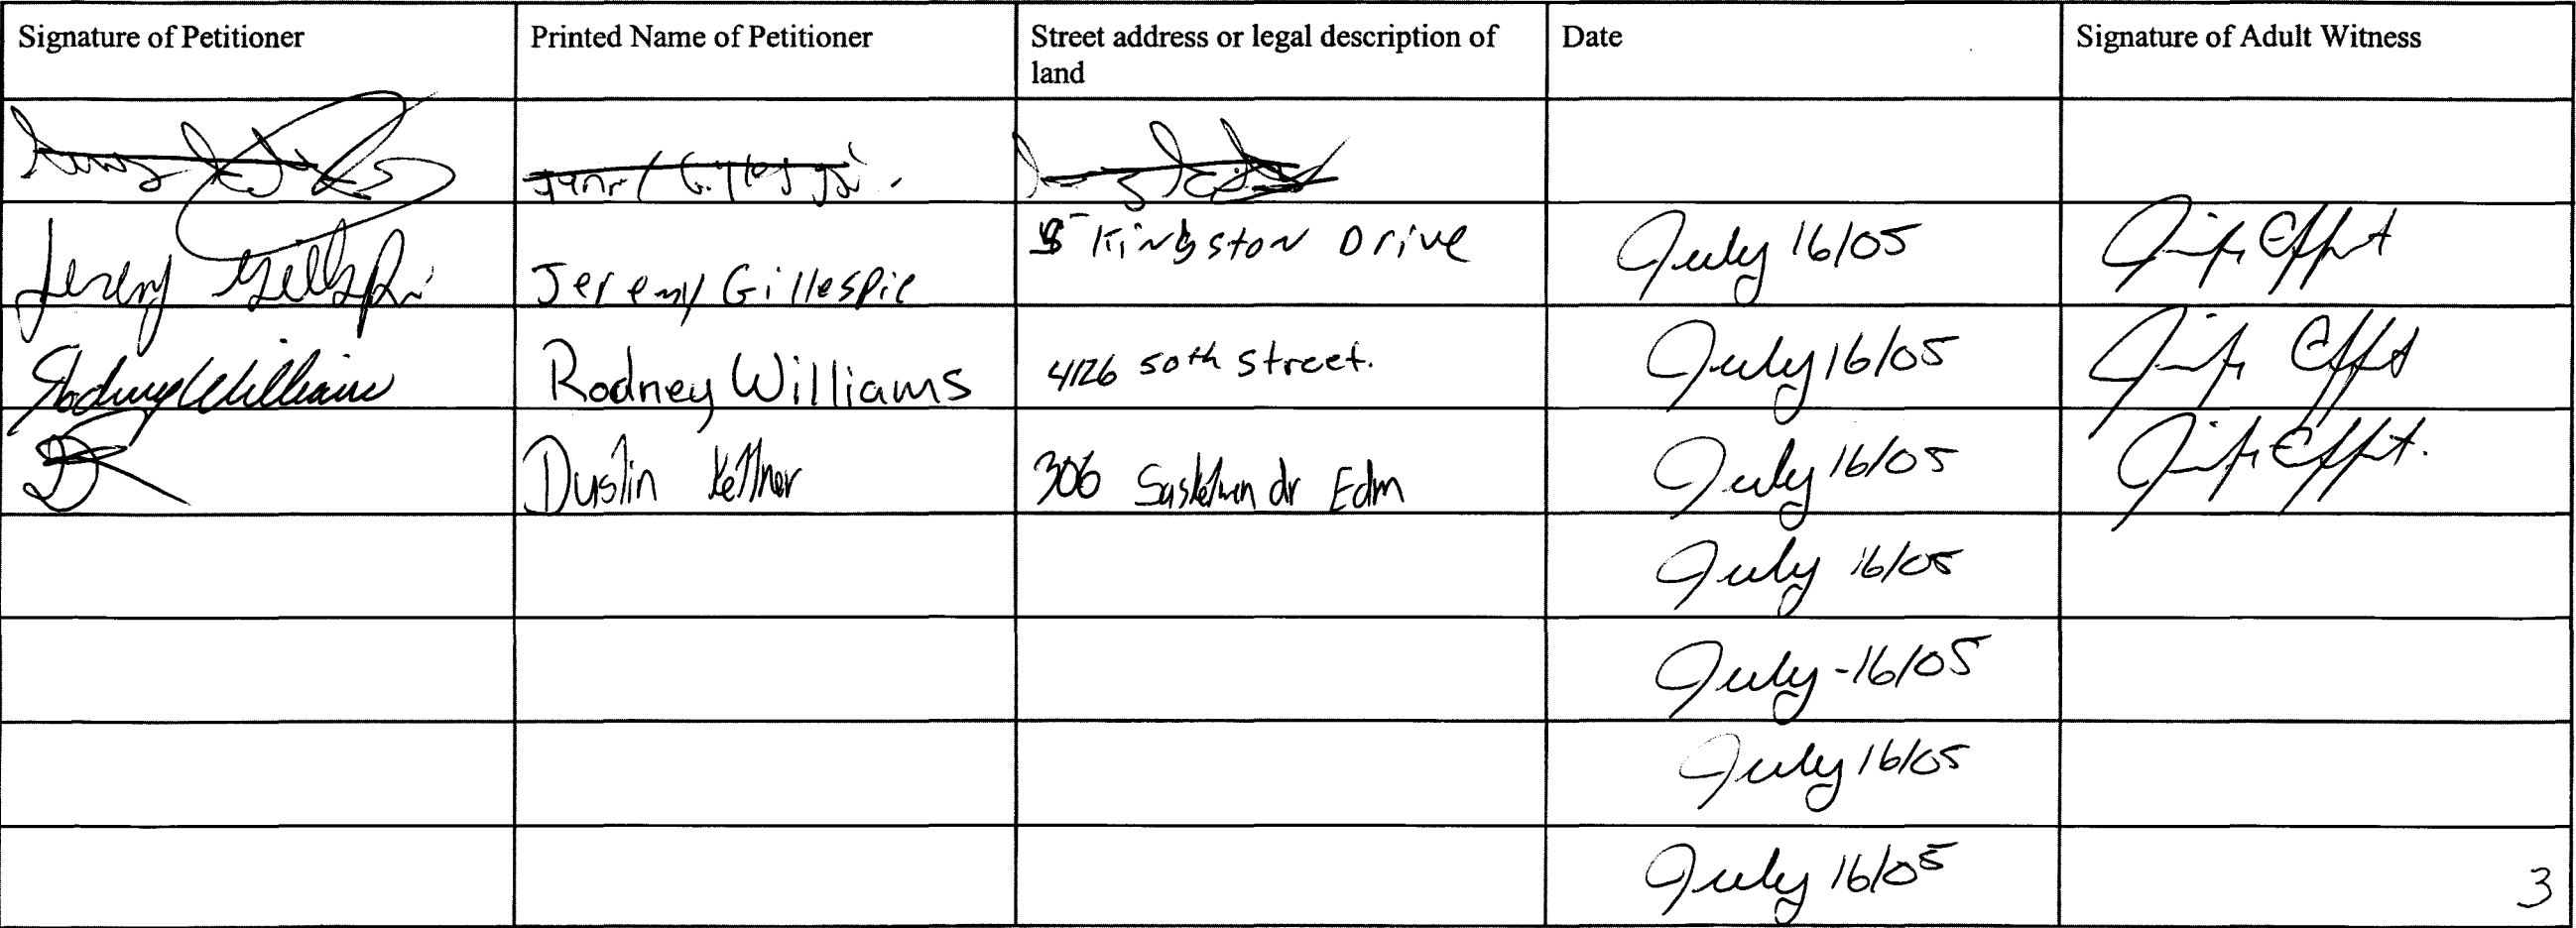 Signature of Petitioner Printed Name of Petitioner Street address or legal description of land Date Signature of Adult Witness
Jeremy Gillespie Jeremy Gillespie 5 Kingston Drive July 16/05
Rodney Williams Rodney Williams 4126 50th Street. July 16/05
DK Dustin Kettner 306 dr Edm July 16/05
July 16/05
July -16/05
July 16/05
July 16/05
3